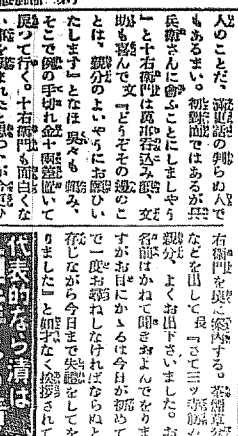 人のことだ、滿更話の判らぬ人で
もあるまい。初對面ではあるが長
兵衞さんに會ふことにしませう
』と十右衞門は萬事呑込み顏、文
助も喜んで、文『どうぞその邊のこ
とは、親分のよいやうにお願ひい
たします』となほ呉々も賴み、
そこで例の手切れ金十兩置いて
戻つて行く。十右衞門も面白くな
右衞門を奧に案內する。茶煙草盆
などを出して、長『さて三ツ
親分、よくお出下さいました。お
名前はかねて聞きおよんでをりま
すがお目にかゝるは今日が初めて
で一度お尋ねしなければならぬと
存じながら今日まで失禮をしてを
りました』と如才なく挨拶されて
代表的なら漬は